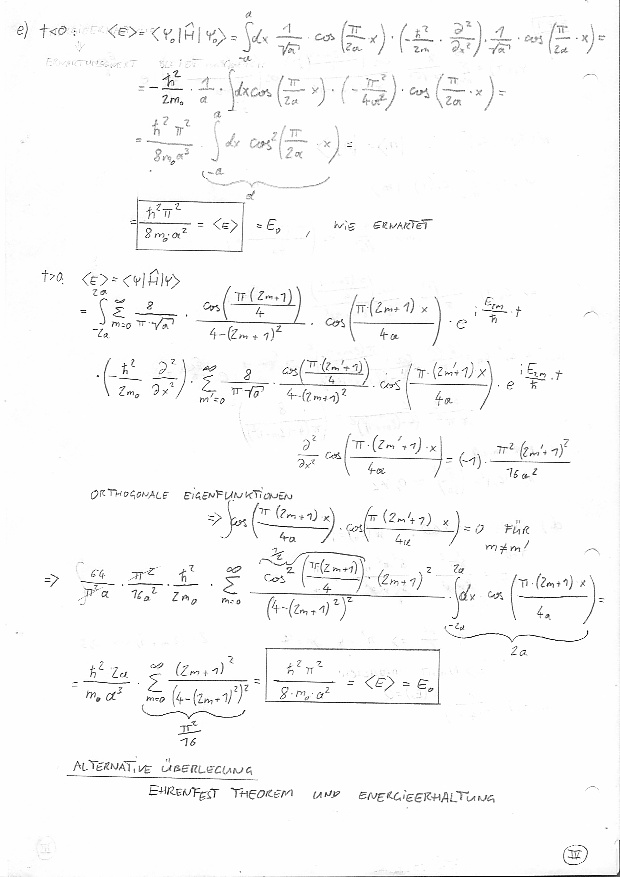 e) t<0: ⟨E⟩=⟨Ψ₀|Ĥ|Ψ₀⟩ = ∫_{-a}^{a} dx 1/√a · cos(π/2a x) · (-ħ²/2m · ∂²/∂x²) · 1/√a · cos(π/2a · x) =
= -ħ²/2m₀ · 1/a · ∫dx cos(π/2a x) · (-π²/4a²) · cos(π/2a · x) =
= ħ²π²/8m₀a³ · ∫_{-a}^{a} dx cos²(π/2a · x) =
a
= ħ²π²/8m₀·a² = ⟨E⟩ = E₀ , WIE ERWARTET
t>0: ⟨E⟩=⟨Ψ|Ĥ|Ψ⟩
= ∫_{-2a}^{2a} Σ_{m=0}^{∞} 8/π·√a · cos(π(2m+1)/4)/4-(2m+1)² · cos(π·(2m+1)x/4a) · e^{i E_{2m}/ħ · t}
· (-ħ²/2m₀ ∂²/∂x²) · Σ_{m'=0}^{∞} 8/π√a · cos(π·(2m'+1)/4)/4-(2m+1)² · cos(π·(2m'+1)x/4a) · e^{i E_{2m}/ħ · t}
∂²/∂x² cos(π·(2m'+1)·x/4a) = (-1) · π²(2m'+1)²/16a²
ORTHOGONALE EIGENFUNKTIONEN
=> ∫cos(π(2m+1)x/4a) · cos(π(2m'+1)x/4a) = 0 FÜR
m≠m'
1/2
=> 64/π²a · π²/16a² · ħ²/2m₀ · Σ_{m=0}^{∞} cos²(π(2m+1)/4)·(2m+1)²/(4-(2m+1)²)² · ∫_{-2a}^{2a} dx cos(π·(2m+1)x/4a) =
2a
= ħ² 2a/m₀ a³ · Σ_{m=0}^{∞} (2m+1)²/(4-(2m+1)²)² = ħ²π²/8·m₀·a² = ⟨E⟩ = E₀
π²/16
ALTERNATIVE ÜBERLEGUNG
EHRENFEST THEOREM UND ENERGIEERHALTUNG
IV